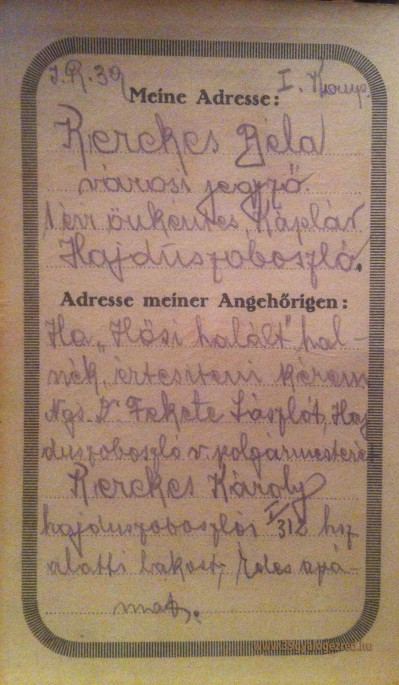 J.R.39 I. Komp.
Meine Adresse:
Kerekes Béla
városi jegyző.
1 évi önkéntes, Káplár
Hajdúszoboszló.
Adresse meiner Angehőrigen:
Ha „Hősi halált" hal-
nék, értesiteni kérem
Ngs. Dr. Fekete Lászlót, Haj
duszoboszló v. polgármesterét
Kerekes Károly
hajduszoboszlói I/312 hsz
alatti lakost, édes apá-
mat.
www.39gyalogezred.hu